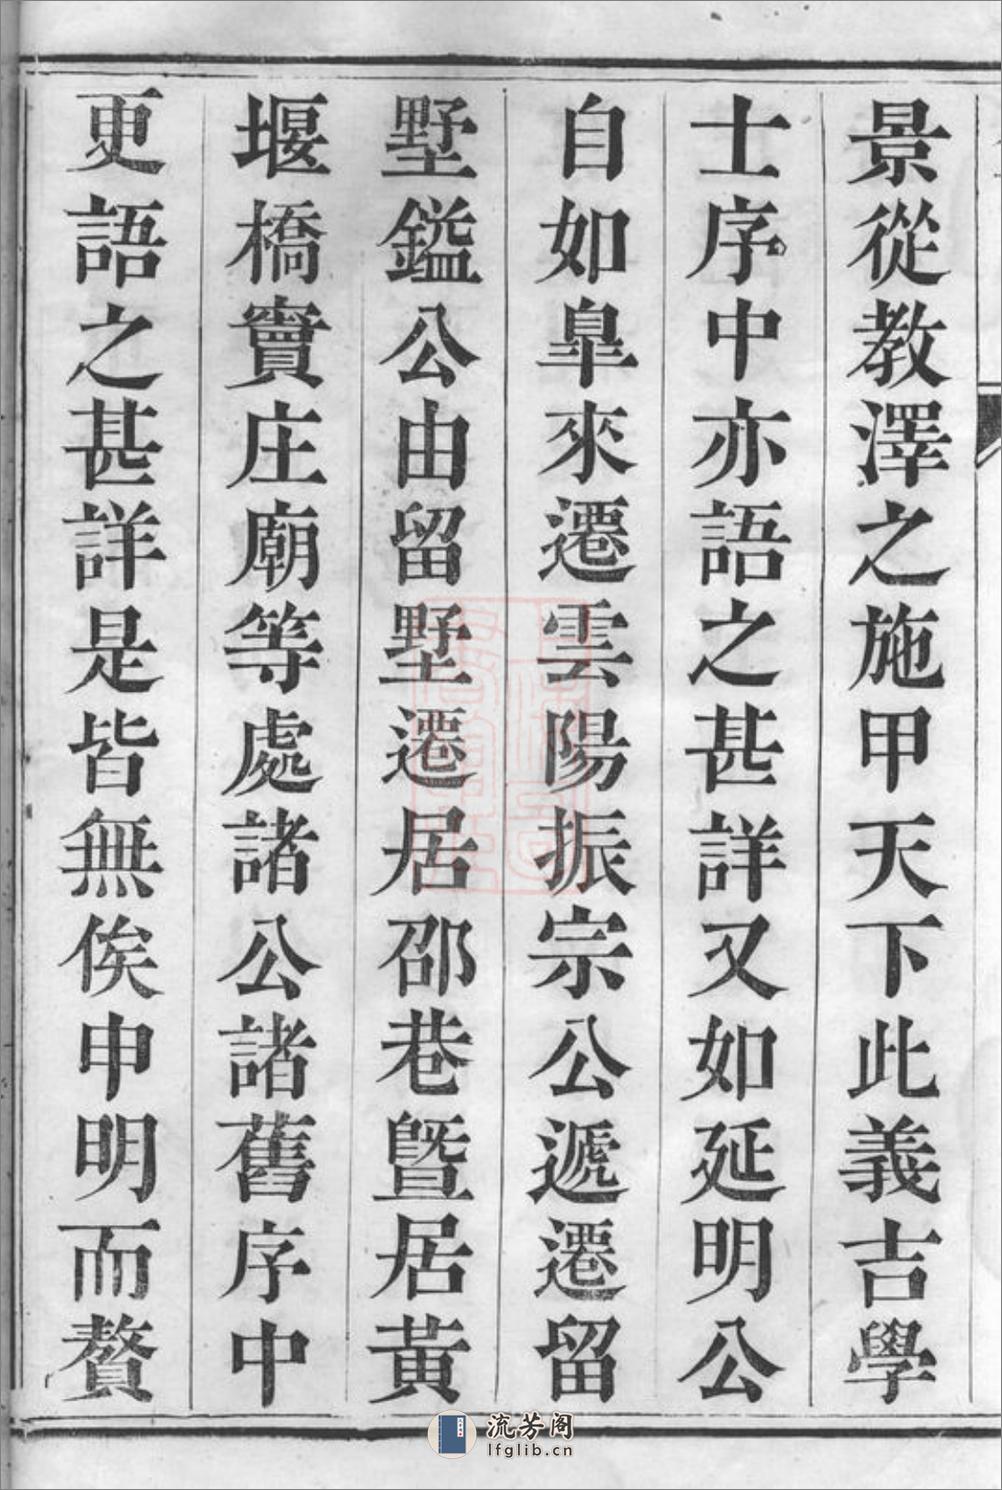 景從教澤之施甲天下此義吉學
士序中亦語之甚詳又如延明公
自如皐來遷雲陽振宗公遞遷留
墅鎰公由留墅遷居邵巷曁居黃
堰橋竇庄廟等處諸公諸舊序中
更語之甚詳是皆無俟申明而贅
流芳阁
lfglib.cn